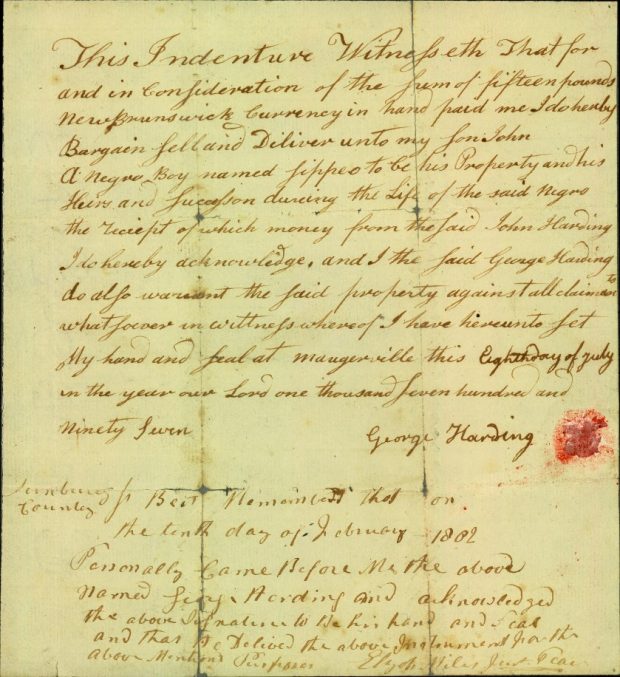 This Indenture Witnesseth That for
and in Consideration of the sum of fifteen pounds
New Brunswick Currency in hand paid me I do herby
Bargain sell and Diliver unto my son John
A Negro Boy named sippeo to be his Property and his
Heirs and succsson dureing the Life of the said Negro
the reciept of which money from the said John Harding
I do hereby acknowledge, and I the said George Harding
do also warrent the said property against all claiments
whatsoever in wittness whereof I have hereunto set
My hand and seal at maugerville this Eighth day of July
in the year our Lord one thousand seven hundred and
Ninety Seven
George Harding
Sunbury Js Beit Remembred that on
County
the tenth day of February 1802
Personally Came Before Me the above
Named Harding and acknowledged
the above to Be his hand and Seal
and that He Delived the above Instrument For the
above Mentiond Purposes Elijah Miles Just Peac